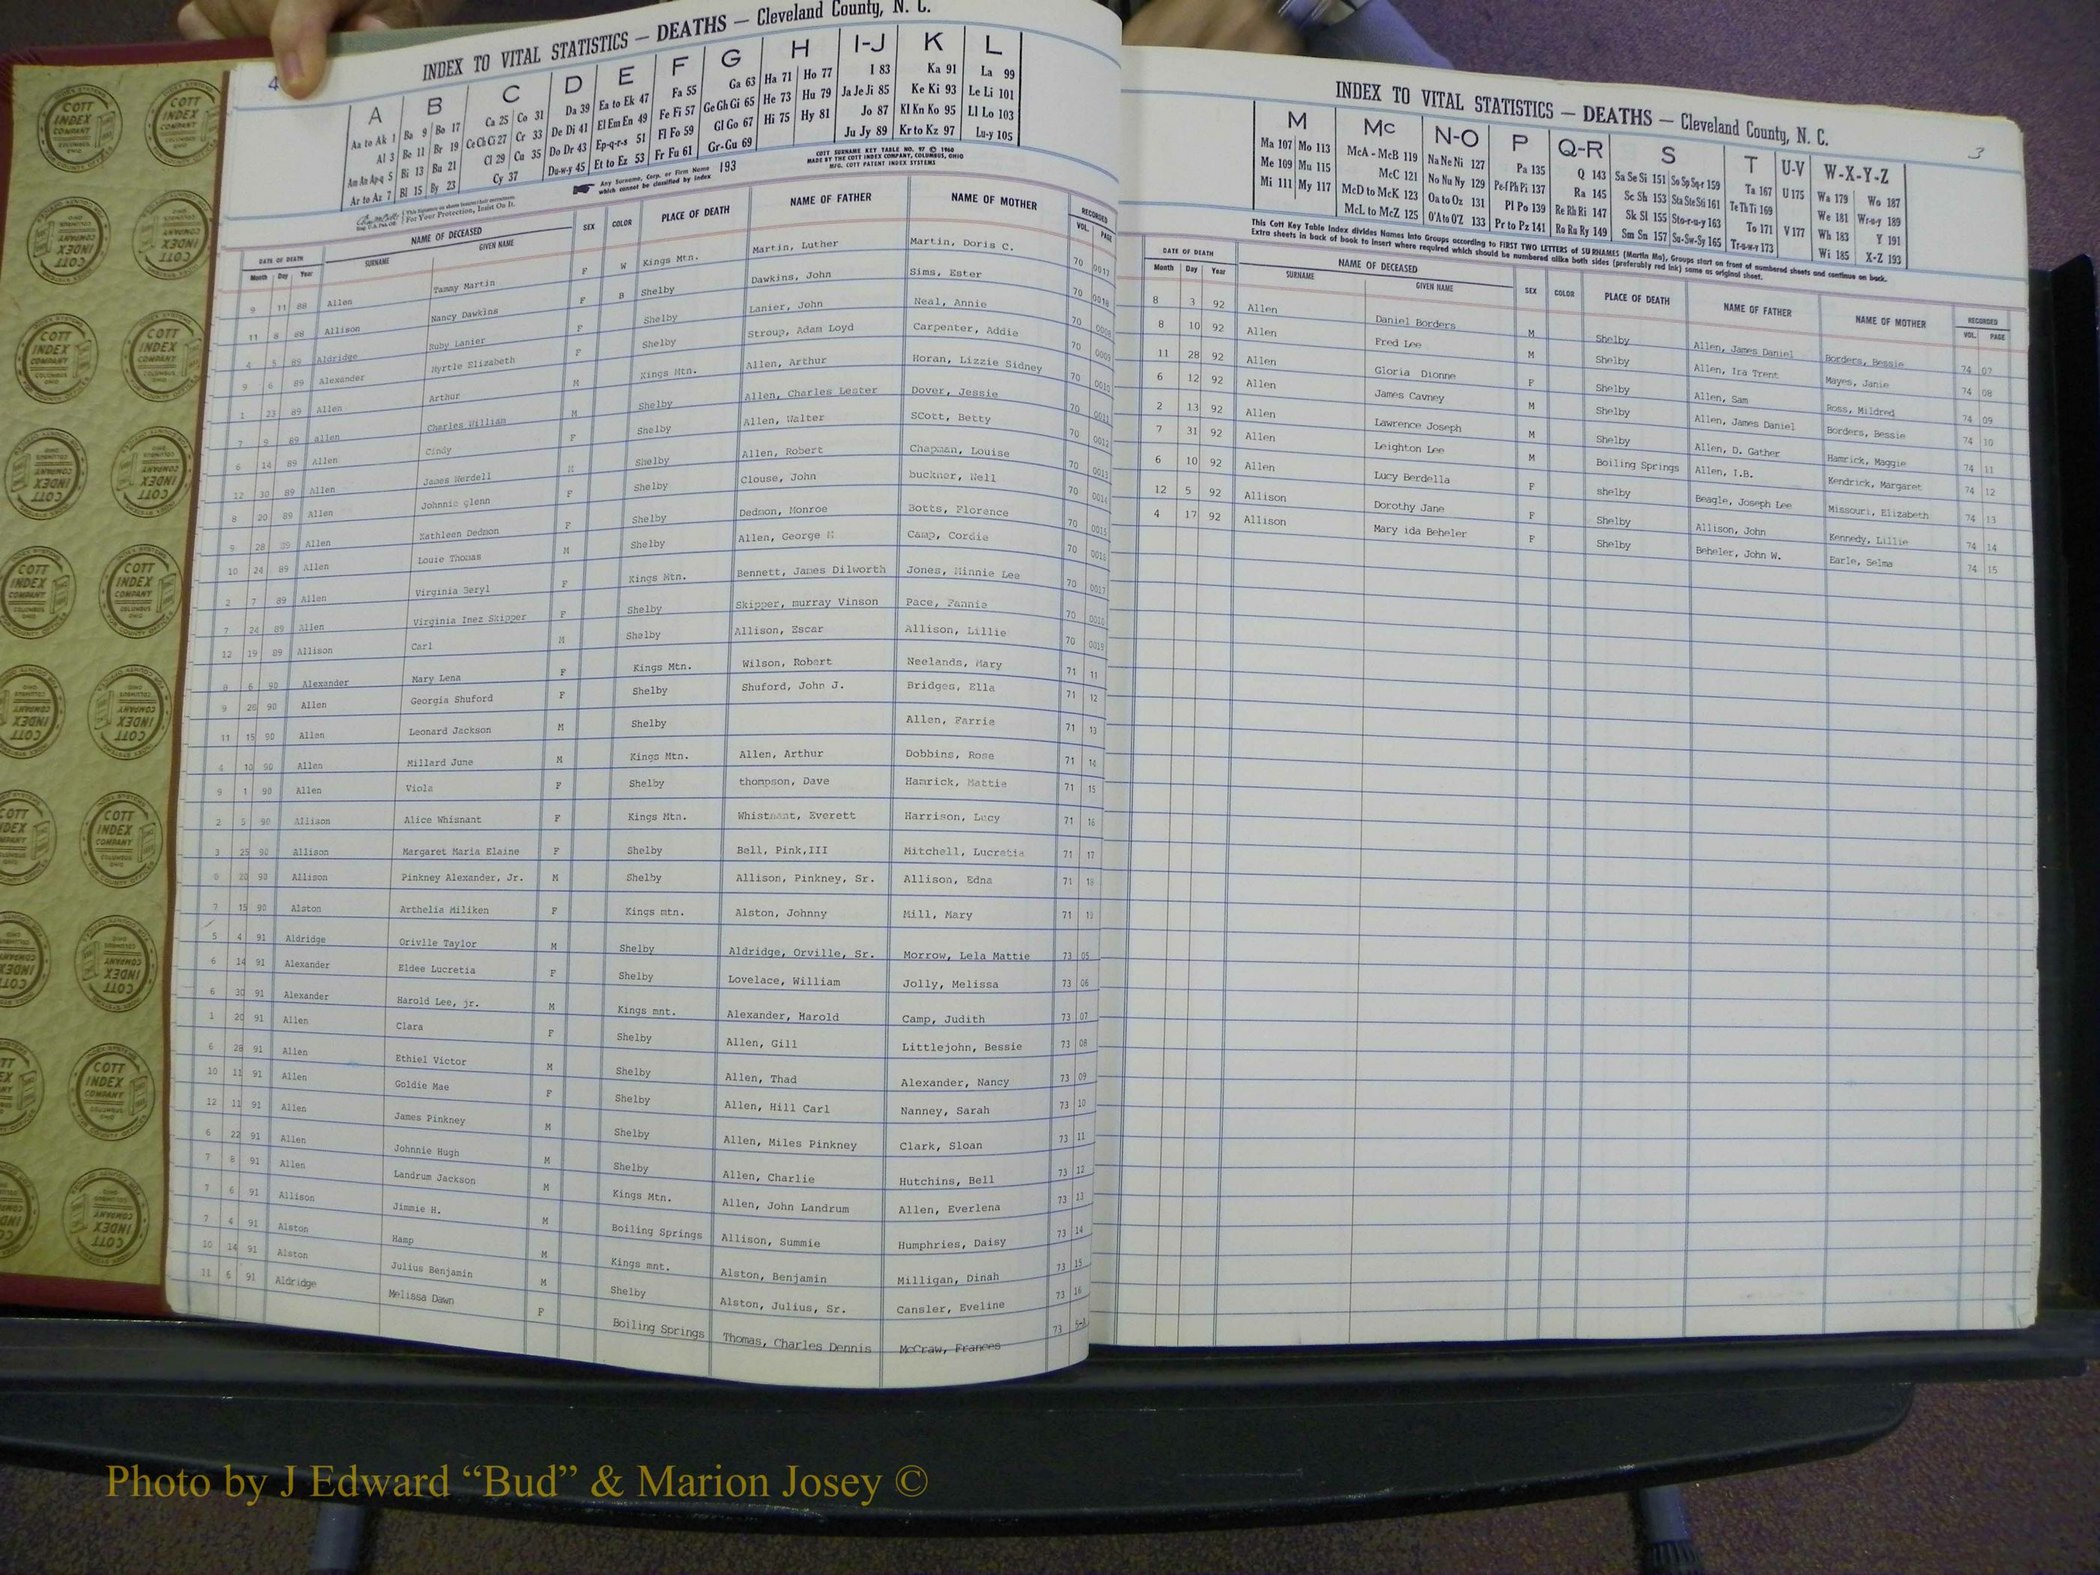 4
INDEX TO VITAL STATISTICS — DEATHS — Cleveland County, N. C.
A B C D E F G H I-J K L
Aa to Ak 1 Ba 9 Bo 17 Ca 25 Co 31 Da 39 Ea to Ek 47 Fa 55 Ga 63 Ha 71 Ho 77 I 83 Ka 91 La 99
Al 3 Be 11 Br 19 Ce Ch Ci 27 Cr 33 De Di 41 El Em En 49 Fe Fi 57 Ge Gh Gi 65 He 73 Hu 79 Ja Je Ji 85 Ke Ki 93 Le Li 101
Am An Ap-q 5 Bi 13 Bu 21 Cl 29 Cu 35 Do Dr 43 Ep-q-r-s 51 Fl Fo 59 Gl Go 67 Hi 75 Hy 81 Jo 87 Kl Kn Ko 95 Ll Lo 103
Ar to Az 7 Bl 15 By 23 Cy 37 Du-w-y 45 Et to Ez 53 Fr Fu 61 Gr-Gu 69 Ju Jy 89 Kr to Kz 97 Lu-y 105
Any Surname, Corp. or Firm Name which cannot be classified by Index 193
COTT SURNAME KEY TABLE NO. 97 © 1960
MADE BY THE COTT INDEX COMPANY, COLUMBUS, OHIO
MFG. COTT PATENT INDEX SYSTEMS
For Your Protection, Insist On It.
DATE OF DEATH NAME OF DECEASED SEX COLOR PLACE OF DEATH NAME OF FATHER NAME OF MOTHER RECORDED
Month Day Year SURNAME GIVEN NAME VOL. PAGE
9 11 88 Allen Tammy Martin F W Kings Mtn. Martin, Luther Martin, Doris C. 70 0017
11 8 88 Allison Nancy Dawkins F B Shelby Dawkins, John Sims, Ester 70 0018
4 5 89 Aldridge Ruby Lanier F Shelby Lanier, John Neal, Annie 70 0008
9 6 89 Alexander Myrtle Elizabeth F Shelby Stroup, Adam Loyd Carpenter, Addie 70 0009
1 23 89 Allen Arthur M Kings Mtn. Allen, Arthur Horan, Lizzie Sidney 70 0010
7 9 89 allen Charles William M Shelby Allen, Charles Lester Dover, Jessie 70 0011
6 14 89 Allen Cindy F Shelby Allen, Walter SCott, Betty 70 0012
12 30 89 Allen James Werdell M Shelby Allen, Robert Chapman, Louise 70 0013
8 20 89 Allen Johnnie glenn F Shelby Clouse, John buckner, Nell 70 0014
9 28 89 Allen Kathleen Dedmon F Shelby Dedmon, Monroe Botts, Florence 70 0015
10 24 89 Allen Louie Thomas M Shelby Allen, George M Camp, Cordie 70 0016
2 7 89 Allen Virginia Beryl F Kings Mtn. Bennett, James Dilworth Jones, Minnie Lee 70 0017
7 24 89 Allen Virginia Inez Skipper F Shelby Skipper, murray Vinson Pace, Fannie 70 0018
12 19 89 Allison Carl M Shelby Allison, Escar Allison, Lillie 70 0019
8 6 90 Alexander Mary Lena F Kings Mtn. Wilson, Robert Neelands, Mary 71 11
9 28 90 Allen Georgia Shuford F Shelby Shuford, John J. Bridges, Ella 71 12
11 15 90 Allen Leonard Jackson M Shelby Allen, Farrie 71 13
4 10 90 Allen Millard June M Kings Mtn. Allen, Arthur Dobbins, Rose 71 14
9 1 90 Allen Viola F Shelby thompson, Dave Hamrick, Mattie 71 15
2 5 90 Allison Alice Whisnant F Kings Mtn. Whistnant, Everett Harrison, Lucy 71 16
3 25 90 Allison Margaret Maria Elaine F Shelby Bell, Pink,III Mitchell, Lucretia 71 17
20 90 Allison Pinkney Alexander, Jr. M Shelby Allison, Pinkney, Sr. Allison, Edna 71 18
7 15 90 Alston Arthelia Miliken F Kings mtn. Alston, Johnny Mill, Mary 71 19
5 4 91 Aldridge Orivlle Taylor M Shelby Aldridge, Orville, Sr. Morrow, Lela Mattie 73 05
6 14 91 Alexander Eldee Lucretia F Shelby Lovelace, William Jolly, Melissa 73 06
6 30 91 Alexander Harold Lee, jr. M Kings mnt. Alexander, Harold Camp, Judith 73 07
1 20 91 Allen Clara F Shelby Allen, Gill Littlejohn, Bessie 73 08
6 28 91 Allen Ethiel Victor M Shelby Allen, Thad Alexander, Nancy 73 09
10 11 91 Allen Goldie Mae F Shelby Allen, Hill Carl Nanney, Sarah 73 10
12 11 91 Allen James Pinkney M Shelby Allen, Miles Pinkney Clark, Sloan 73 11
6 22 91 Allen Johnnie Hugh M Shelby Allen, Charlie Hutchins, Bell 73 12
7 8 91 Allen Landrum Jackson M Kings Mtn. Allen, John Landrum Allen, Everlena 73 13
7 6 91 Allison Jimmie H. M Boiling Springs Allison, Summie Humphries, Daisy 73 14
7 4 91 Alston Hamp M Kings mnt. Alston, Benjamin Milligan, Dinah 73 15
10 14 91 Alston Julius Benjamin M Shelby Alston, Julius, Sr. Cansler, Eveline 73 16
11 6 91 Aldridge Melissa Dawn F Boiling Springs Thomas, Charles Dennis McCraw, Frances 73 5-A
3
INDEX TO VITAL STATISTICS — DEATHS — Cleveland County, N. C.
M Mc N-O P Q-R S T U-V W-X-Y-Z
Ma 107 Mo 113 McA - McB 119 Na Ne Ni 127 Pa 135 Q 143 Sa Se Si 151 So Sp Sq-r 159 Ta 167 U 175 Wa 179 Wo 187
Me 109 Mu 115 McC 121 No Nu Ny 129 Pe-f Ph Pi 137 Ra 145 Sc Sh 153 Sta Ste Sti 161 Te Th Ti 169 We 181 Wr-u-y 189
Mi 111 My 117 McD to McK 123 Oa to Oz 131 Pl Po 139 Re Rh Ri 147 Sk Sl 155 Sto-r-u-y 163 To 171 V 177 Wh 183 Y 191
McL to McZ 125 O'A to O'Z 133 Pr to Pz 141 Ro Ru Ry 149 Sm Sn 157 Su-Sw-Sy 165 Tr-u-w-y 173 Wi 185 X-Z 193
This Cott Key Table Index divides Names into Groups according to FIRST TWO LETTERS of SURNAMES (Martin Ma), Groups start on front of numbered sheets and continue on back.
Extra sheets in back of book to insert where required which should be numbered alike both sides (preferably red ink) same as original sheet.
DATE OF DEATH NAME OF DECEASED SEX COLOR PLACE OF DEATH NAME OF FATHER NAME OF MOTHER RECORDED
Month Day Year SURNAME GIVEN NAME VOL. PAGE
8 3 92 Allen Daniel Borders M Shelby Allen, James Daniel Borders, Bessie 74 07
8 10 92 Allen Fred Lee M Shelby Allen, Ira Trent Mayes, Janie 74 08
11 28 92 Allen Gloria Dionne F Shelby Allen, Sam Ross, Mildred 74 09
6 12 92 Allen James Cavney M Shelby Allen, James Daniel Borders, Bessie 74 10
2 13 92 Allen Lawrence Joseph M Shelby Allen, D. Gather Hamrick, Maggie 74 11
7 31 92 Allen Leighton Lee M Boiling Springs Allen, I.B. Kendrick, Margaret 74 12
6 10 92 Allen Lucy Berdella F shelby Beagle, Joseph Lee Missouri, Elizabeth 74 13
12 5 92 Allison Dorothy Jane F Shelby Allison, John Kennedy, Lillie 74 14
4 17 92 Allison Mary ida Beheler F Shelby Beheler, John W. Earle, Selma 74 15
COTT INDEX COMPANY COLUMBUS OHIO
Photo by J Edward “Bud” & Marion Josey ©